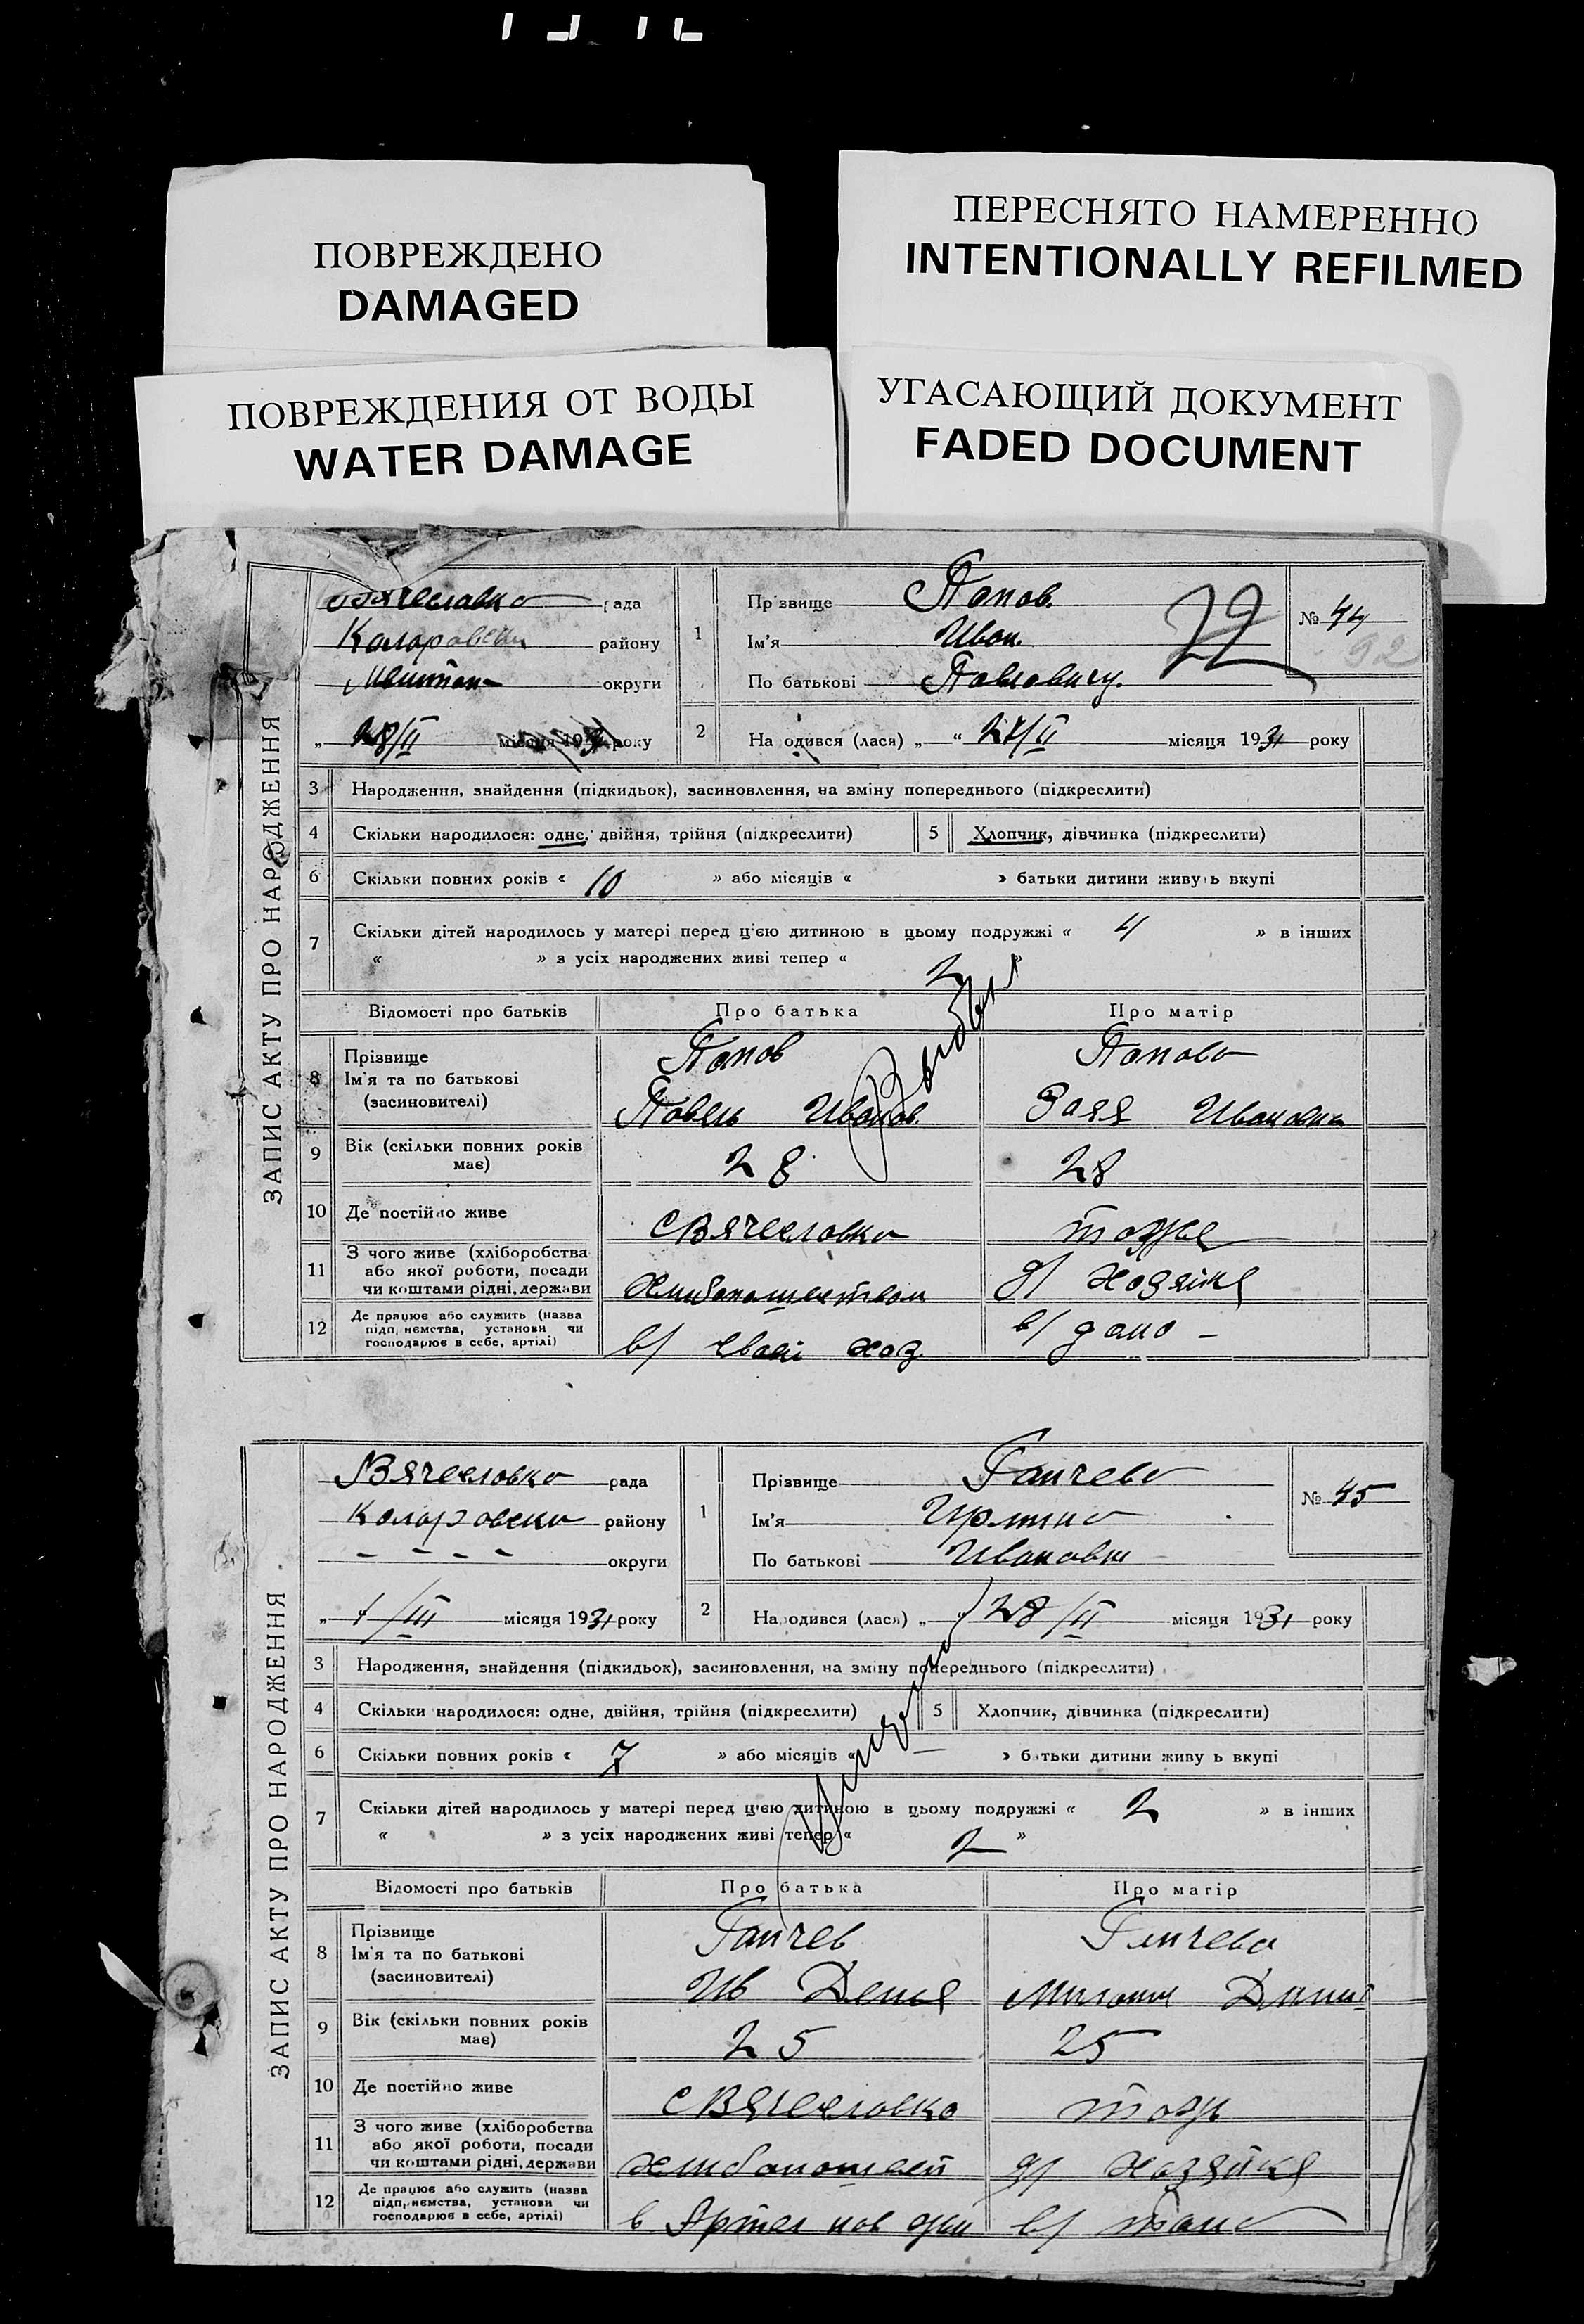 ПОВРЕЖДЕНО
DAMAGED
ПЕРЕСНЯТО НАМЕРЕННО
INTENTIONALLY REFILMED
ПОВРЕЖДЕНИЯ ОТ ВОДЫ
WATER DAMAGE
УГАСАЮЩИЙ ДОКУМЕНТ
FADED DOCUMENT
ЗАПИС АКТУ ПРО НАРОДЖЕННЯ
Вячеславка рада
Коларовски району
округи
28/II місяця 1931 року
1 Прізвище Попов.
Ім'я Иван.
По батькові Павлович
22
№ 44
92
2 Народився (лася) „ “ 27/II місяця 1931 року
3 Народження, знайдення (підкидьок), засиновлення, на зміну попереднього (підкреслити)
4 Скільки народилося: одне, двійня, трійня (підкреслити) 5 Хлопчик, дівчинка (підкреслити)
6 Скільки повних років « 10 » або місяців « » батьки дитини живуть вкупі
7 Скільки дітей народилось у матері перед ц'єю дитиною в цьому подружжі « 4 » в інших
« » з усіх народжених живі тепер « 2 »
Відомості про батьків Про батька Про матір
8 Прізвище Попов Попова
Ім'я та по батькові
(засиновителі) Иванов. Ивановна
9 Вік (скільки повних років має) 28 28
10 Де постійно живе с Вячеславка тоже
11 З чого живе (хліборобства або якої роботи, посади чи коштами рідні, держави д/ хозяйка
12 Де працює або служить (назва підприємства, установи чи господарює в себе, артілі) в/ своей хоз.
ЗАПИС АКТУ ПРО НАРОДЖЕННЯ
Вячеславка рада
Коларовски району
- - - - округи
„ 1/III місяця 1931 року
1 Прізвище Ганчева
Ім'я
По батькові Ивановна
№ 45
2 Народився (лася) „ 28/II місяця 1931 року
3 Народження, знайдення (підкидьок), засиновлення, на зміну попереднього (підкреслити)
4 Скільки народилося: одне, двійня, трійня (підкреслити) 5 Хлопчик, дівчинка (підкреслити)
6 Скільки повних років « 7 » або місяців « — » батьки дитини живуть вкупі
7 Скільки дітей народилось у матері перед ц'єю дитиною в цьому подружжі « 2 » в інших
« » з усіх народжених живі тепер « 2 »
Відомості про батьків Про батька Про матір
8 Прізвище Ганчев Ганчева
Ім'я та по батькові
(засиновителі) Ив
9 Вік (скільки повних років має) 25 25
10 Де постійно живе с Вячеславка
11 З чого живе (хліборобства або якої роботи, посади чи коштами рідні, держави д/ хозяйка
12 Де працює або служить (назва підприємства, установи чи господарює в себе, артілі) в Артел